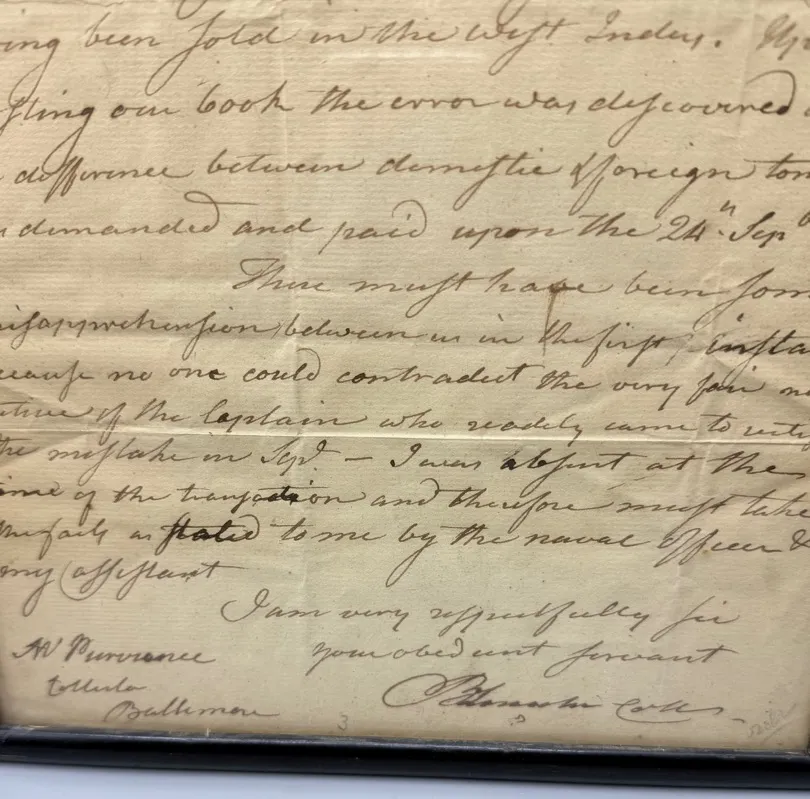 ing been sold in the West Indies. Up
sting our book the error was discovered
difference between domestic & foreign ton
demanded and paid upon the 24th Sep
There must have been som
isapprehension between us in the first insta
ecause no one could contradict the very fair na
ative of the Captain who readely came to
the mistake in Sepr. — I was absent at the
ime of the transaction and therefore must take
the facts as stated to me by the naval officer &
my assistant
I am very respectfully sir
your obedient servant
Mr Purviance
Baltimore
BLincoln Coll
3